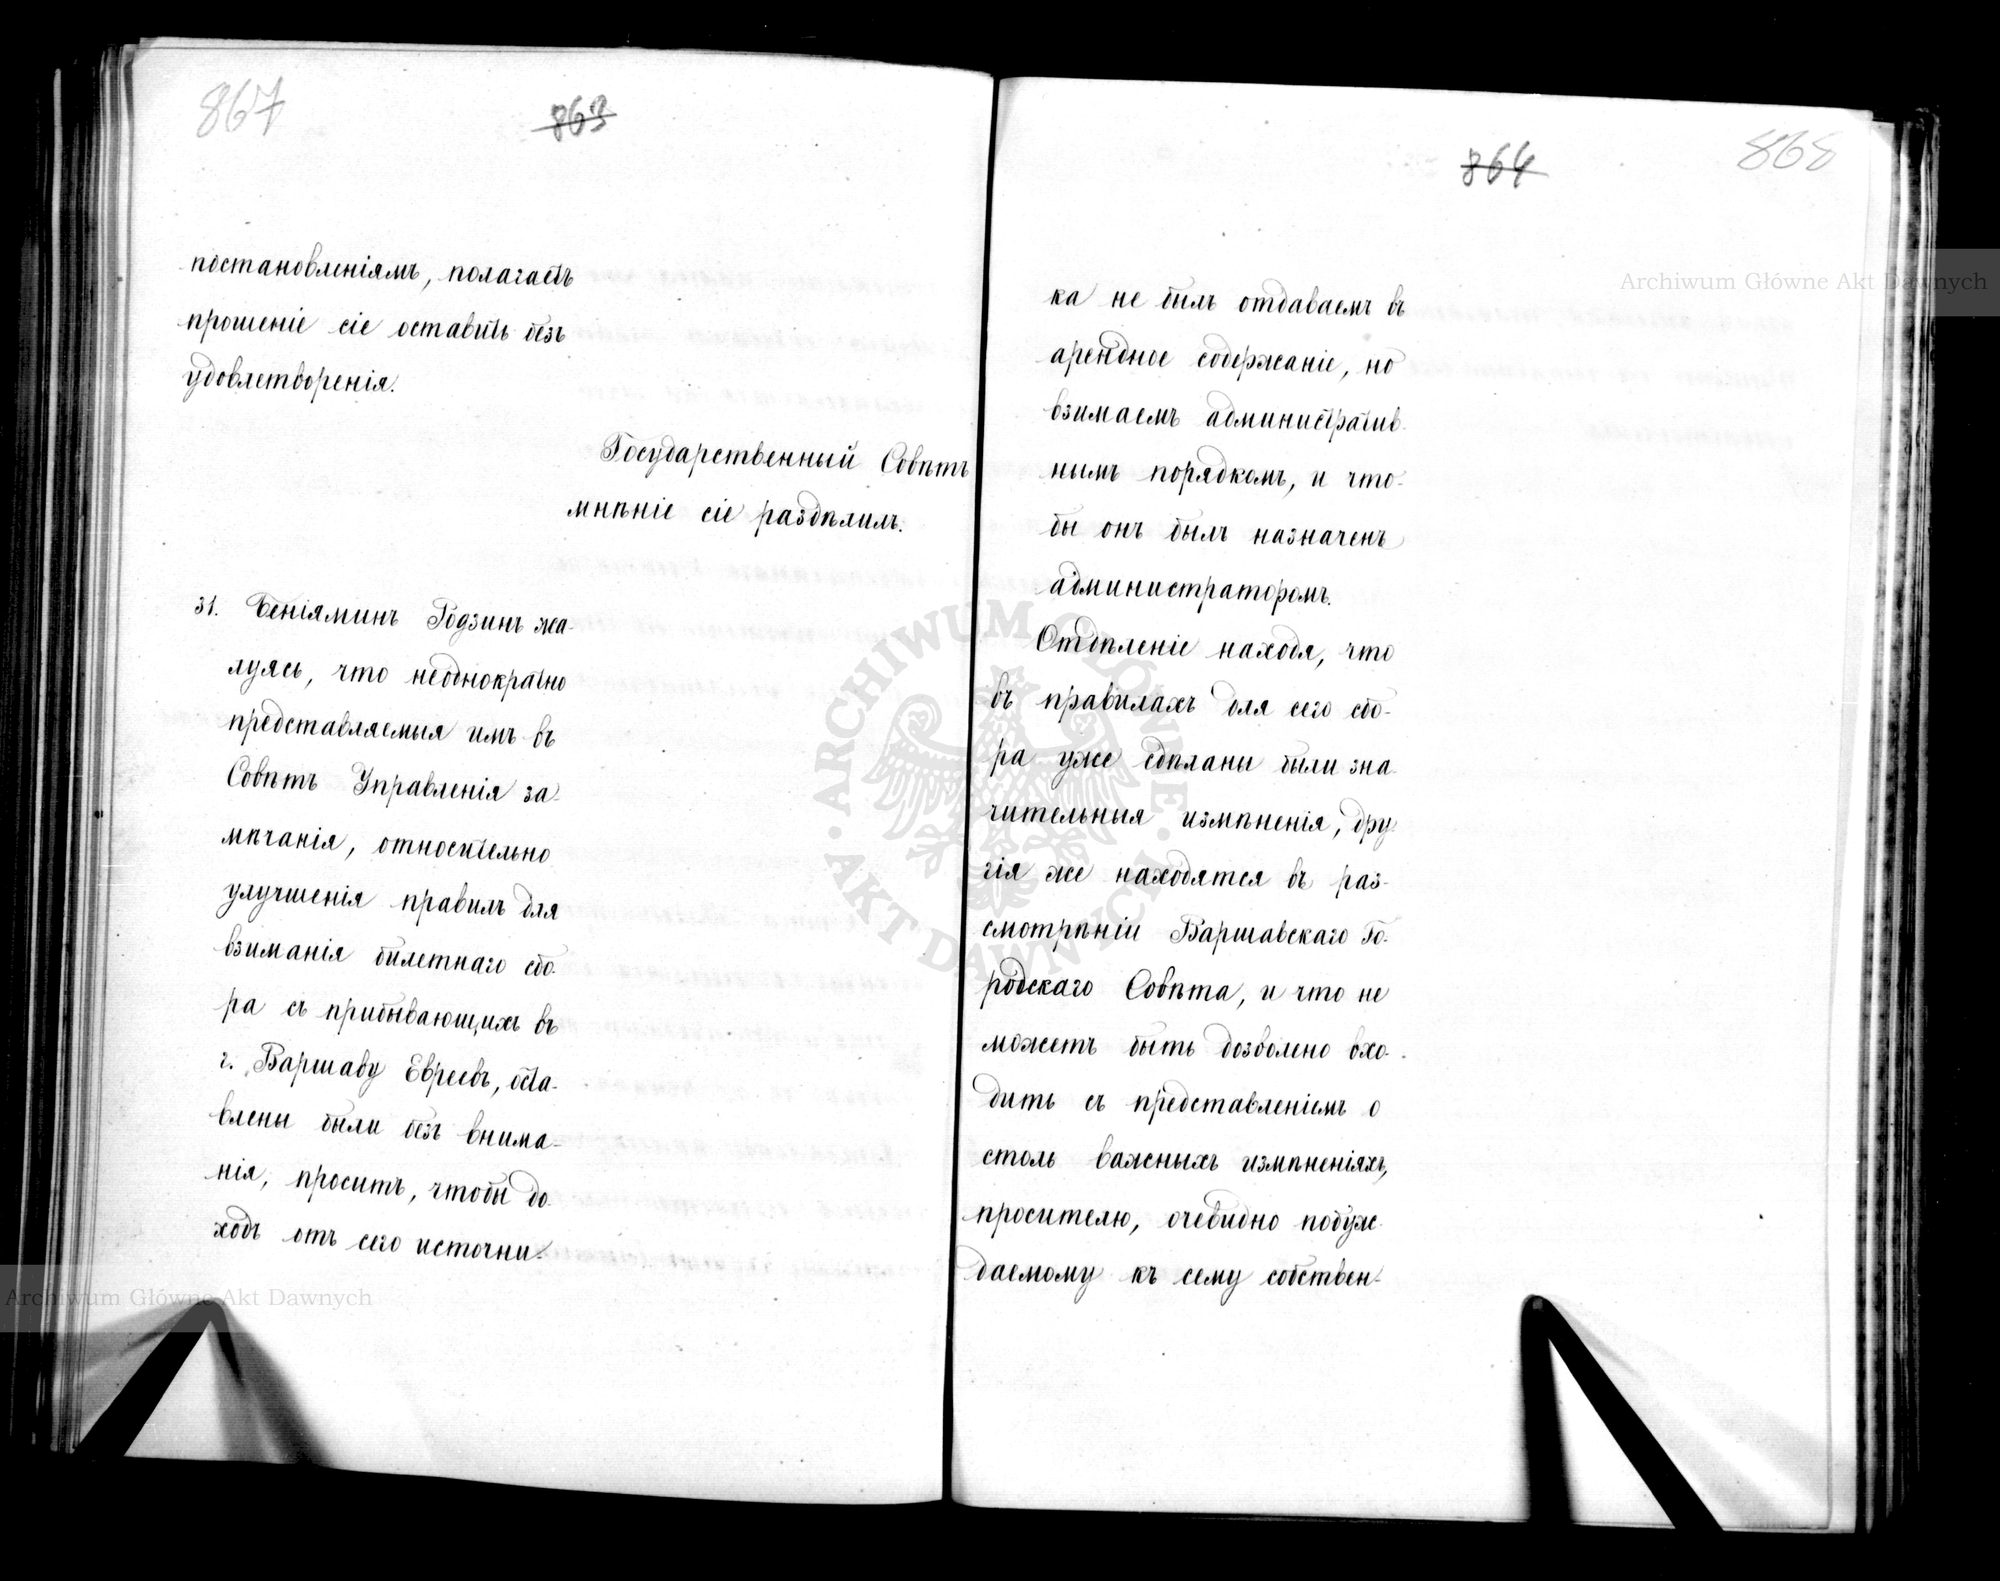 867
863
постановленіямъ, полагаетъ
прошеніе сіе оставить безъ
удовлетворенія.
Государственный Совѣтъ
мнѣніе сіе раздѣлилъ.
31. Беніяминъ Годзинъ жа-
луясь, что неоднократно
представляемыя имъ въ
Совѣтъ Управленія за-
мѣчанія, относительно
улучшенія правилъ для
взиманія билетнаго сбо-
ра съ прибывающихъ въ
г. Варшаву Евреевъ, оста-
влены были безъ внима-
нія, проситъ, чтобы до-
ходъ отъ сего источни-
864
868
ка не былъ отдаваемъ въ
арендное содержаніе, но
взимаемъ административ-
нымъ порядкомъ, и что-
бы онъ былъ назначенъ
администраторомъ.
Отдѣленіе находя, что
въ правилахъ для сего сбо-
ра уже сдѣланы были зна-
чительныя измѣненія, дру-
гія же находятся въ раз-
смотрѣніи Варшавскаго Го-
родскаго Совѣта, и что не
можетъ быть дозволено вхо-
дить съ представленіемъ о
столь важныхъ измѣненіяхъ,
просителю, очевидно побуж-
даемому къ сему собствен-
Archiwum Główne Akt Dawnych
Archiwum Główne Akt Dawnych
ARCHIWUM GŁÓWNE · AKT DAWNYCH ·